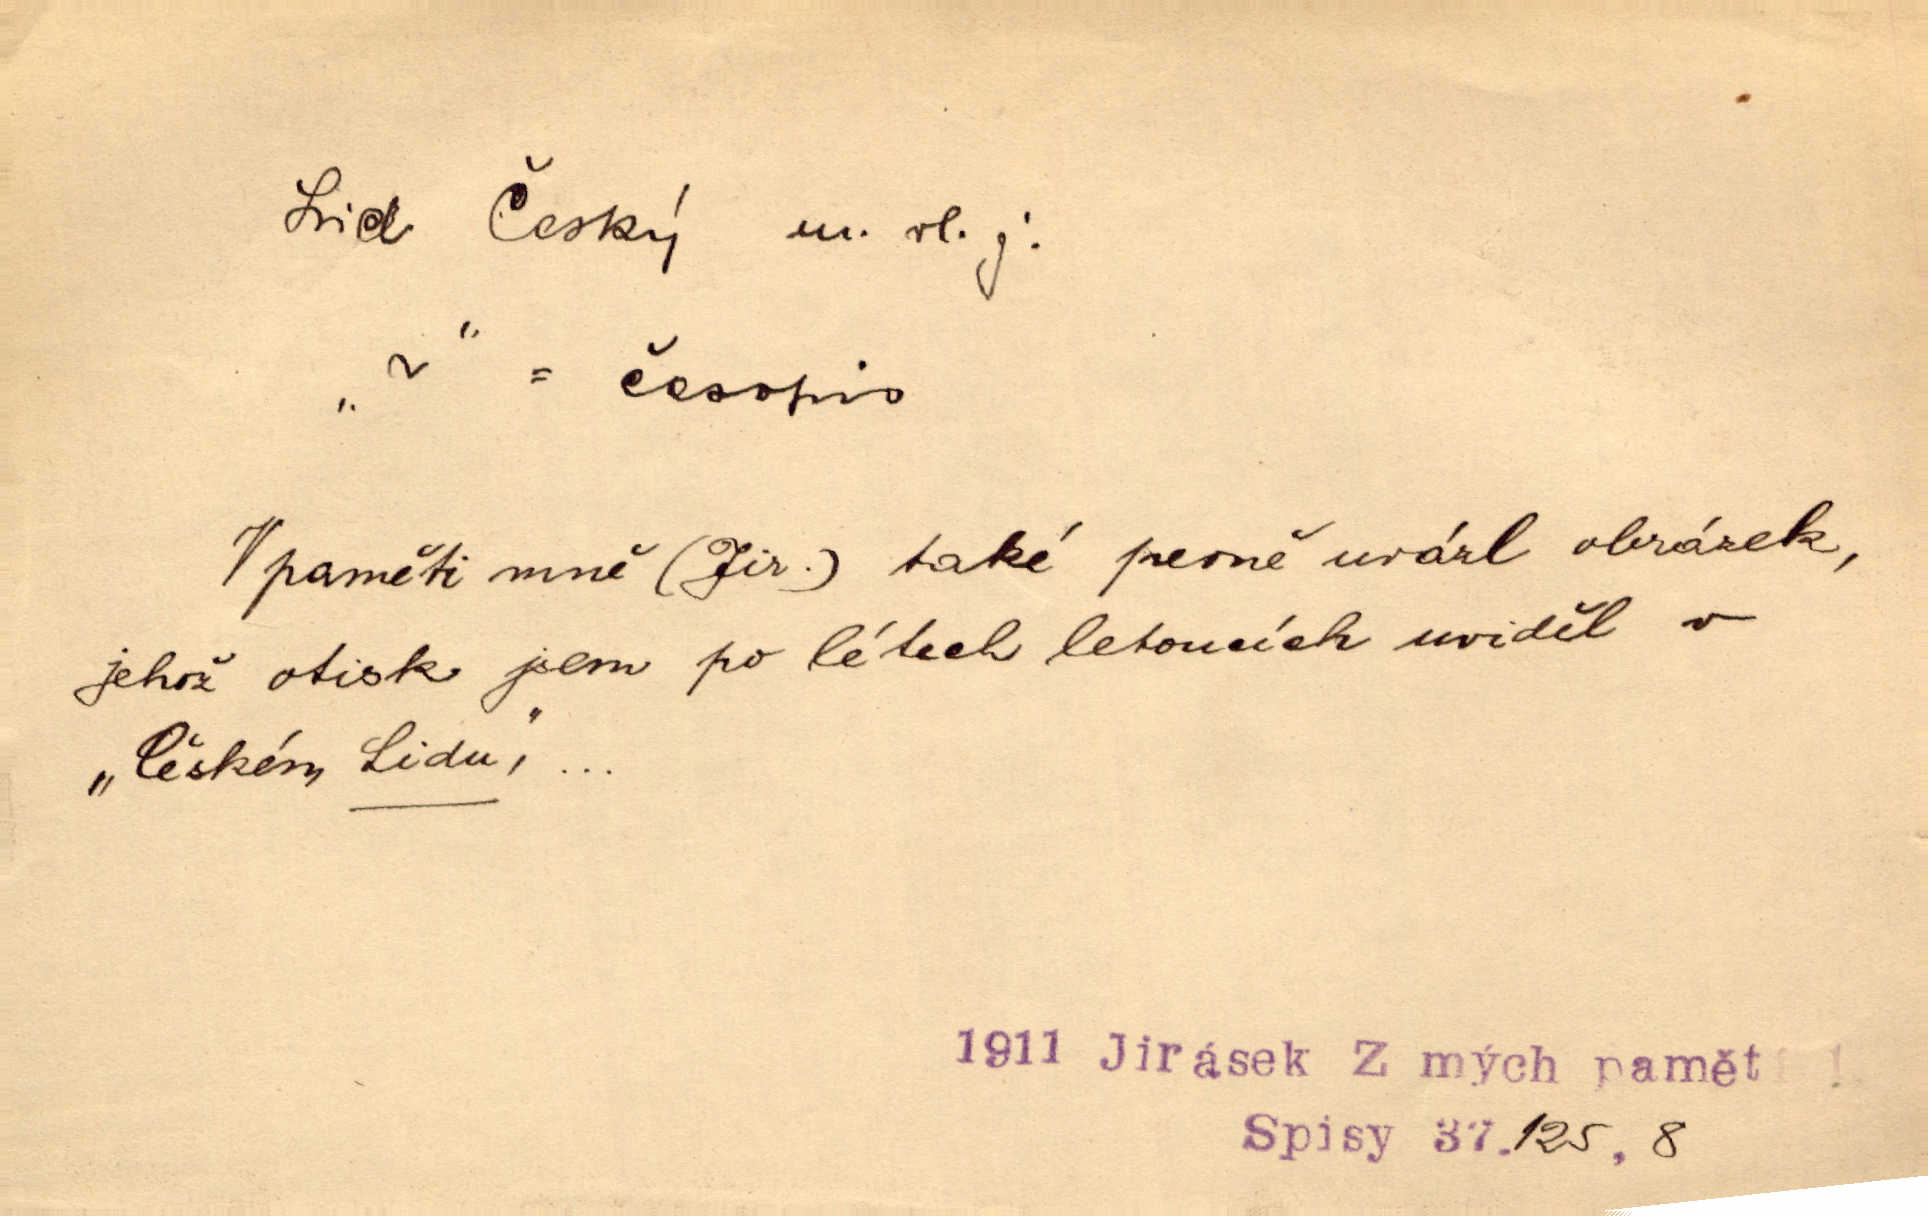 Lid Český m. vl. j.
„~" = časopis
V paměti mně (Jir.) také pevně uvázl obrázek,
jehož otisk jsem po létech letoucích uviděl v
„Českém Lidu", ...
1911 Jirásek Z mých pamětí I.
Spisy 37.125, 8